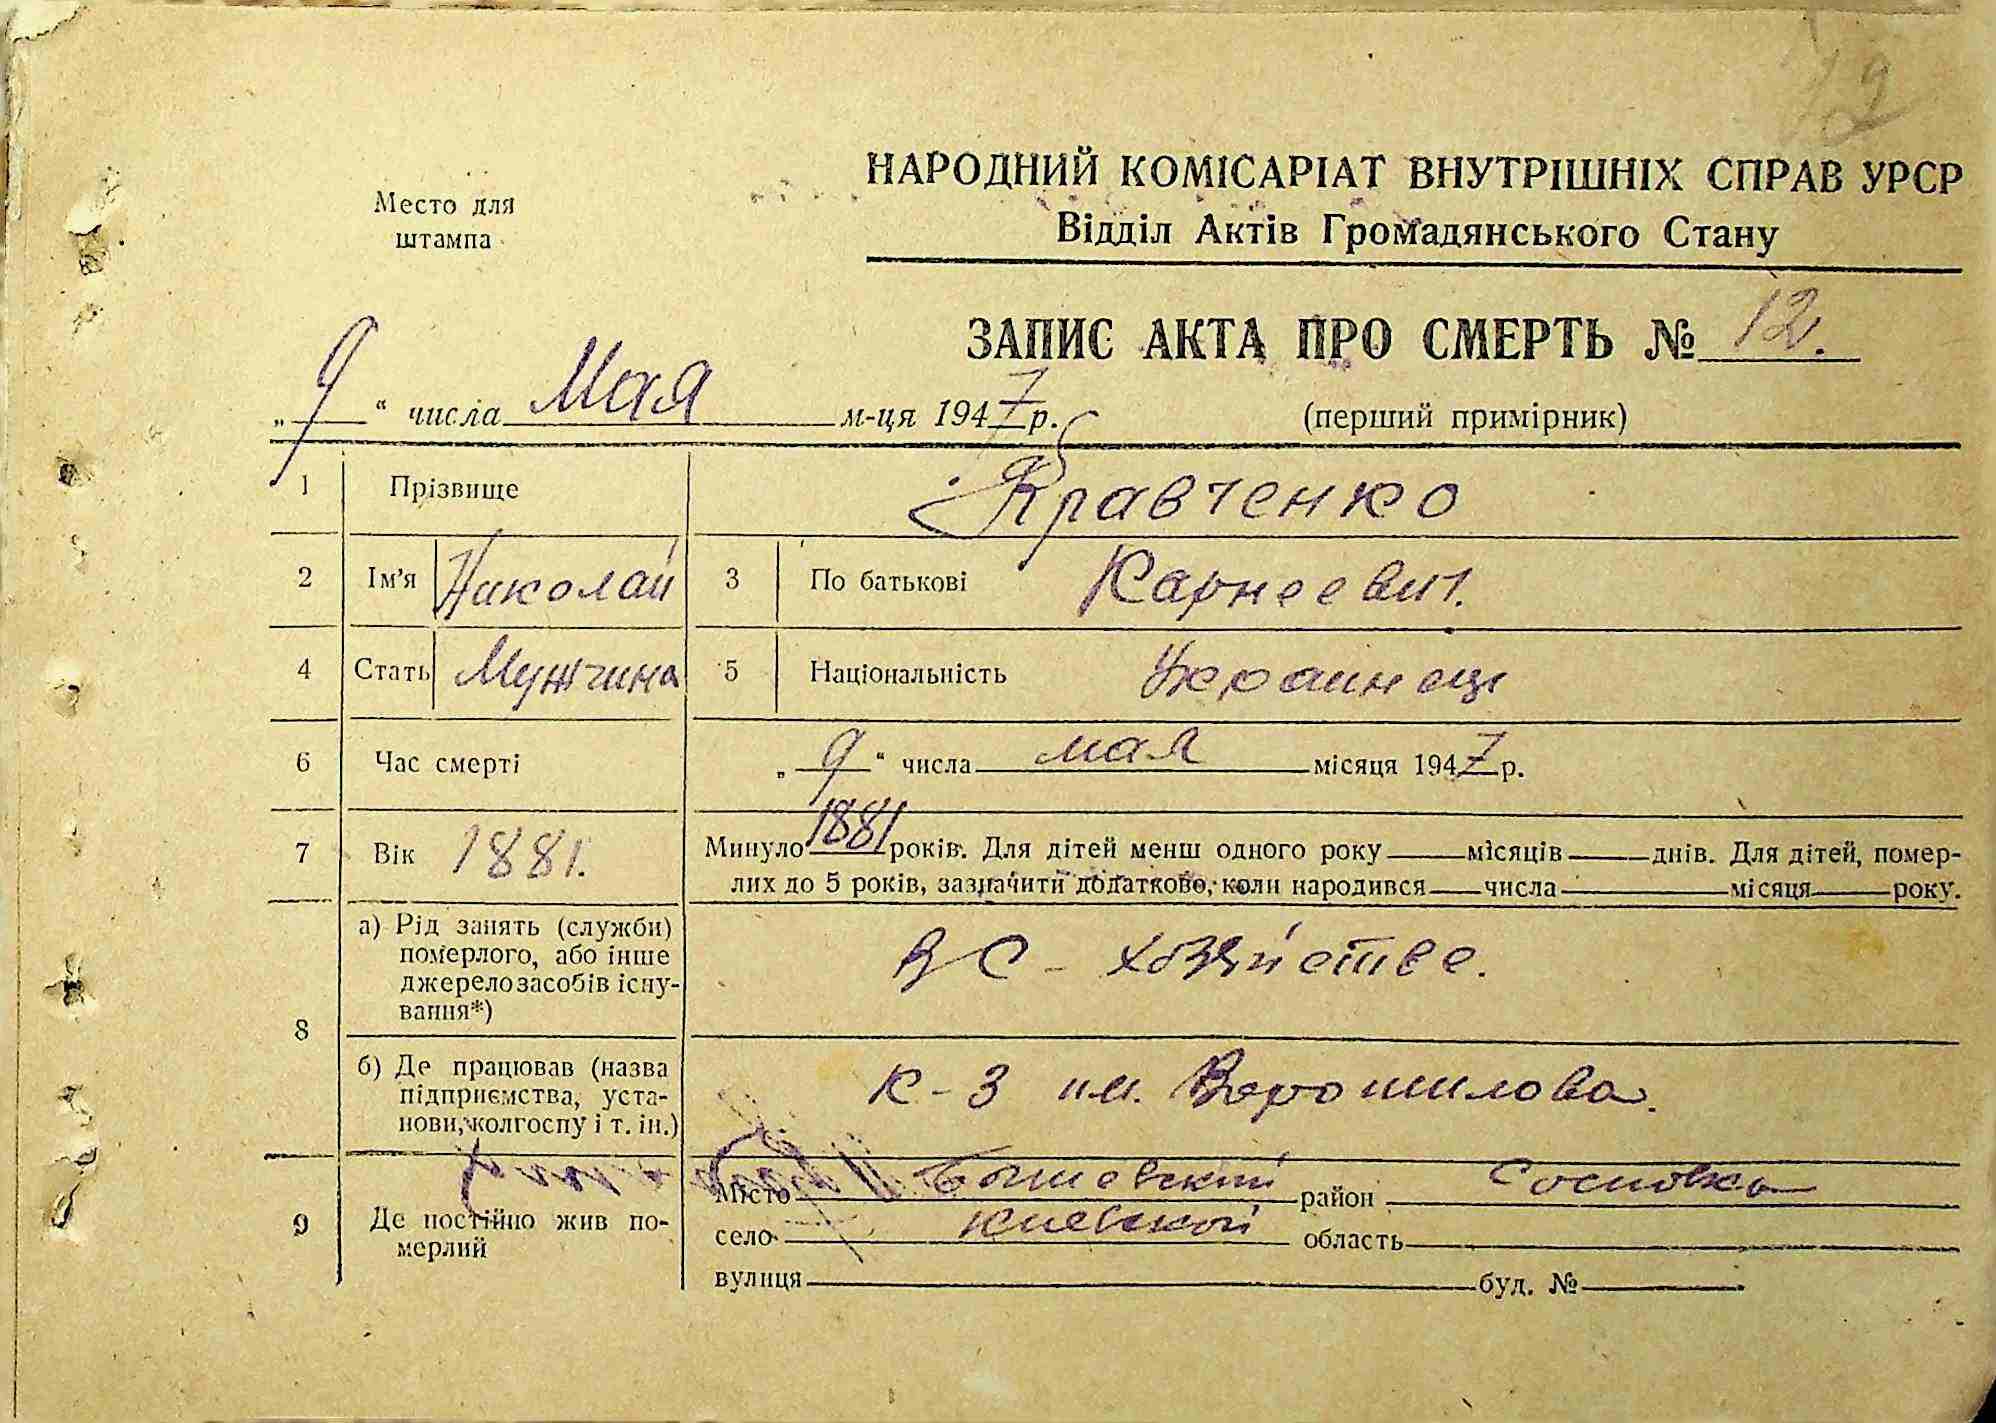 12
Место для
штампа
НАРОДНИЙ КОМІСАРІАТ ВНУТРІШНІХ СПРАВ УРСР
Відділ Актів Громадянського Стану
ЗАПИС АКТА ПРО СМЕРТЬ № 12.
„9“ числа Мая м-ця 1947 р.
(перший примірник)
1 Прізвище Кравченко
2 Ім’я Николай 3 По батькові Карнеевич.
4 Стать Мужчина 5 Національність Украинец
6 Час смерті „9“ числа мая місяця 1947 р.
7 Вік 1881. Минуло 1881 років. Для дітей менш одного року місяців днів. Для дітей, помер-
лих до 5 років, зазначити додатково, коли народився числа місяця року.
8 а) Рід занять (служби)
померлого, або інше
джерело засобів існу-
вання*)
в С-хозяйстве.
б) Де працював (назва
підприємства, уста-
нови, колгоспу і т. ін.)
К-з им. Ворошилова.
9 Де постійно жив по-
мерлий
Місто Бышевский район Сосновка
село Киевской область
вулиця буд. №